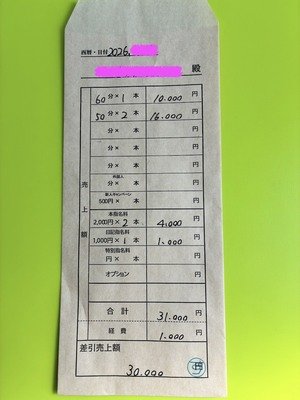 西暦・日付 2026.
殿
売上額
60分×1本 10.000円
50分×2本 16.000円
分× 本 円
分× 本 円
分× 本 円
外国人
分× 本 円
新人キャンペーン
500円× 本 円
本指名料
2,000円×2本 4,000円
日記指名料
1,000円×1本 1.000円
特別指名料
円× 本 円
オプション 円
円
合計 31.000円
経費 1.000円
差引売上額
30.000 円